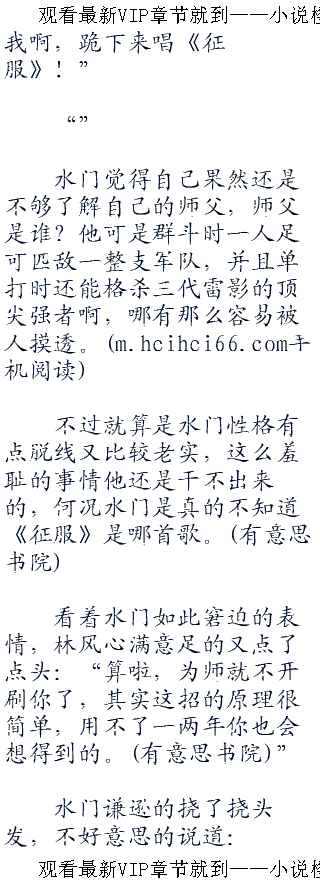 观看最新VIP章节就到——小说检
我啊，跪下来唱《征
服》！”
“”
水门觉得自己果然还是
不够了解自己的师父，师父
是谁？他可是群斗时一人足
可匹敌一整支军队，并且单
打时还能格杀三代雷影的顶
尖强者啊，哪有那么容易被
人摸透。(m.hcihci66.com手
机阅读)
不过就算是水门性格有
点脱线又比较老实，这么羞
耻的事情他还是干不出来
的，何况水门是真的不知道
《征服》是哪首歌。(有意思
书院)
看着水门如此窘迫的表
情，林风心满意足的又点了
点头：“算啦，为师就不开
刷你了，其实这招的原理很
简单，用不了一两年你也会
想得到的。(有意思书院)”
水门谦逊的挠了挠头
发，不好意思的说道：
观看最新VIP章节就到——小说检